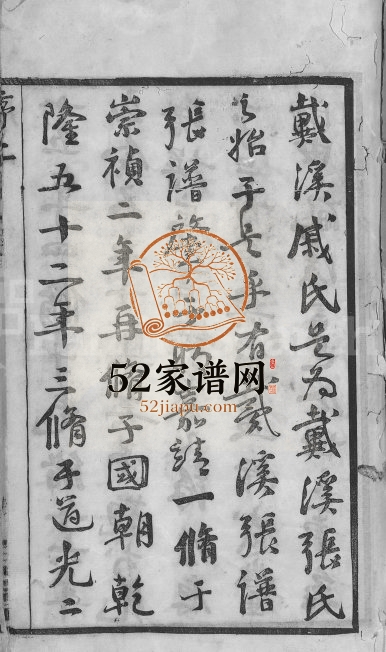 戴溪戚氏是為戴溪張氏
之始于是乎有戴溪張譜
張譜 嘉靖一脩于
崇禎二年再脩于國朝乾
隆五十二年三脩于道光二
序二
52家谱网
52jiapu.com